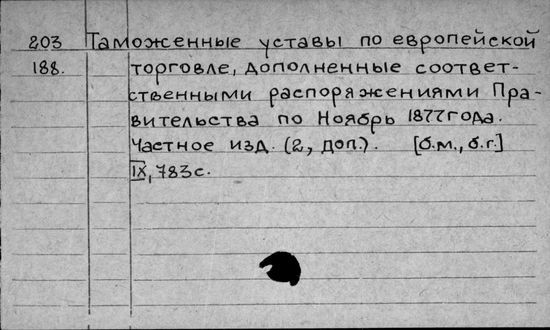 203 Таможенные уставы по европейской
188. торговле, дополненные соответ-
ственными распоряжениями Пра-
вительства по Ноябрь 1877 года.
Частное изд. (2, доп.). [б.м., б.г.]
IX, 783 с.